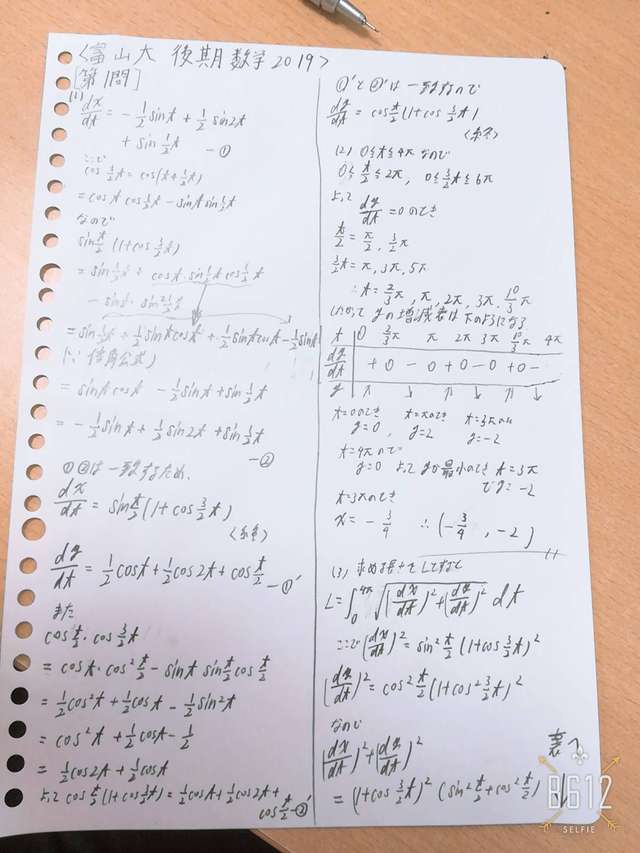 <富山大 後期数学2019>
[第1問]
(1) dx/dt = -1/2 sint + 1/2 sin2t
+ sin 1/2 t —①
ここで
cos 3/2 t = cos(t + 1/2 t)
= cost cos 1/2 t - sint sin 1/2 t
なので
sin t/2 (1+cos 3/2 t)
= sin 1/2 t + cost・sin 1/2 t cos 1/2 t
- sint・sin² 1/2 t
= sin 1/2 t + 1/2 sint cost + 1/2 sint cost - 1/2 sint
(∵倍角公式)
= sint cost - 1/2 sint + sin 1/2 t
= -1/2 sint + 1/2 sin2t + sin 1/2 t
—②
①②は一致するため、
dx/dt = sin t/2 (1+cos 3/2 t)
<終>
dy/dt = 1/2 cost + 1/2 cos2t + cos t/2 —①'
また
cos t/2・cos 3/2 t
= cost・cos² t/2 - sint sin t/2 cos t/2
= 1/2 cos²t + 1/2 cost - 1/2 sin²t
= cos²t + 1/2 cost - 1/2
= 1/2 cos2t + 1/2 cost
よって cos t/2 (1+cos 3/2 t) = 1/2 cost + 1/2 cos2t +
cos t/2 —②'
①'と②'は一致するので
dy/dt = cos t/2 (1+cos 3/2 t)
<終>
(2) 0≦t≦4π なので
0≦t/2≦2π, 0≦3/2 t≦6π
よって dy/dt = 0のとき
t/2 = π/2, 3/2 π
3/2 t = π, 3π, 5π
∴t = 2/3 π, π, 2π, 3π, 10/3 π
したがって yの増減表は下のようになる
t 0 2/3 π π 2π 3π 10/3 π 4π
dy/dt + 0 - 0 + 0 - 0 + 0 -
y
t=0のとき t=πのとき t=3πのとき
y=0, y=2 y=-2
t=4πので
y=0 よって yが最小のとき t=3π
で y=-2
t=3πのとき
x = -3/4 ∴(-3/4, -2)
(3) 求める長さをLとすると
L = ∫₀^4π √((dx/dt)² + (dy/dt)²) dt
ここで (dx/dt)² = sin² t/2 (1+cos 3/2 t)²
(dy/dt)² = cos² t/2 (1+cos² 3/2 t)²
なので
(dx/dt)² + (dy/dt)²
= (1+cos 3/2 t)² (sin² t/2 + cos² t/2)
裏へ
B612
SELFIE